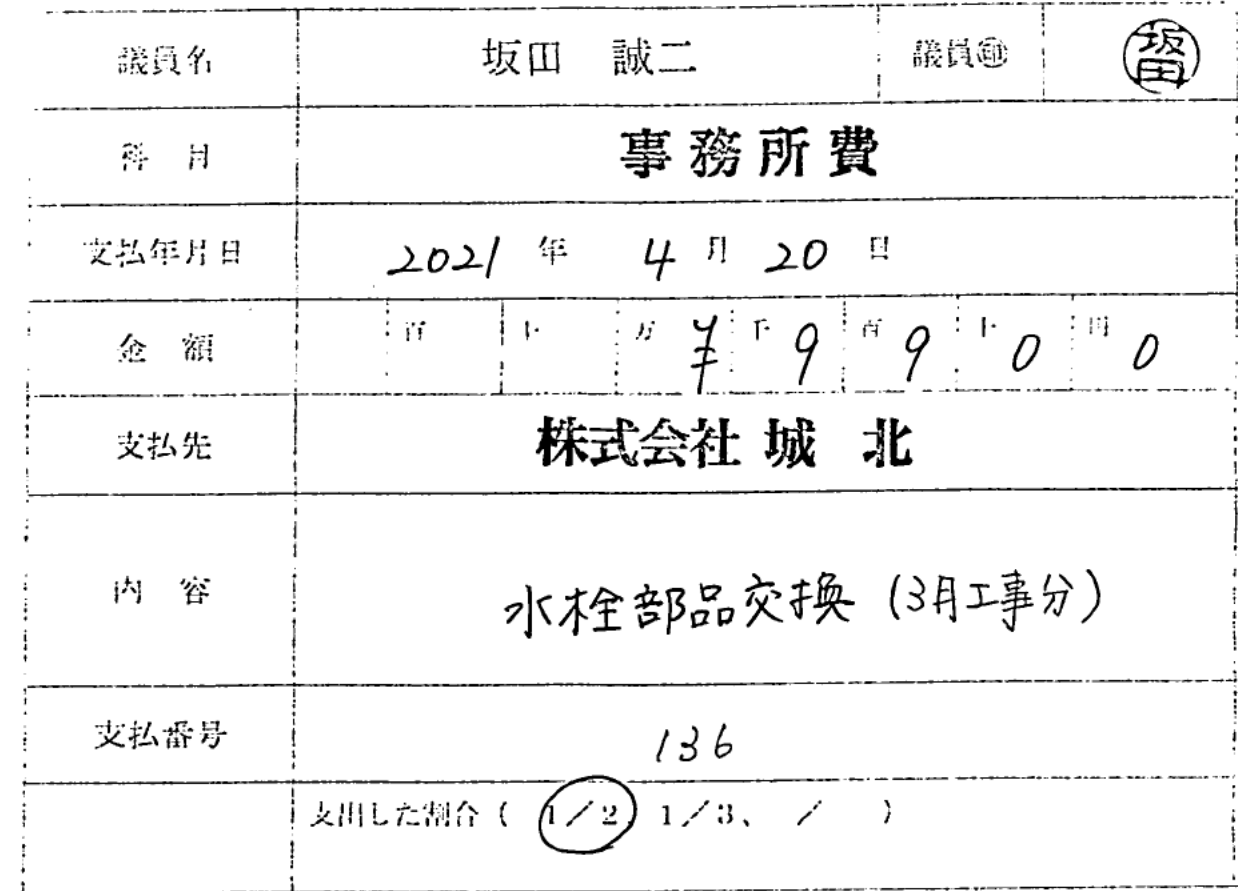 議員名 坂田 誠二 議員㊞ 坂田
科目 事務所費
支払年月日 2021年 4月 20日
金額 百 十 万 ¥ 千 9 百 9 十 0 円 0
支払先 株式会社 城 北
内容 水栓部品交換 (3月工事分)
支払番号 136
支出した割合 ( 1/2 1/3、 / )